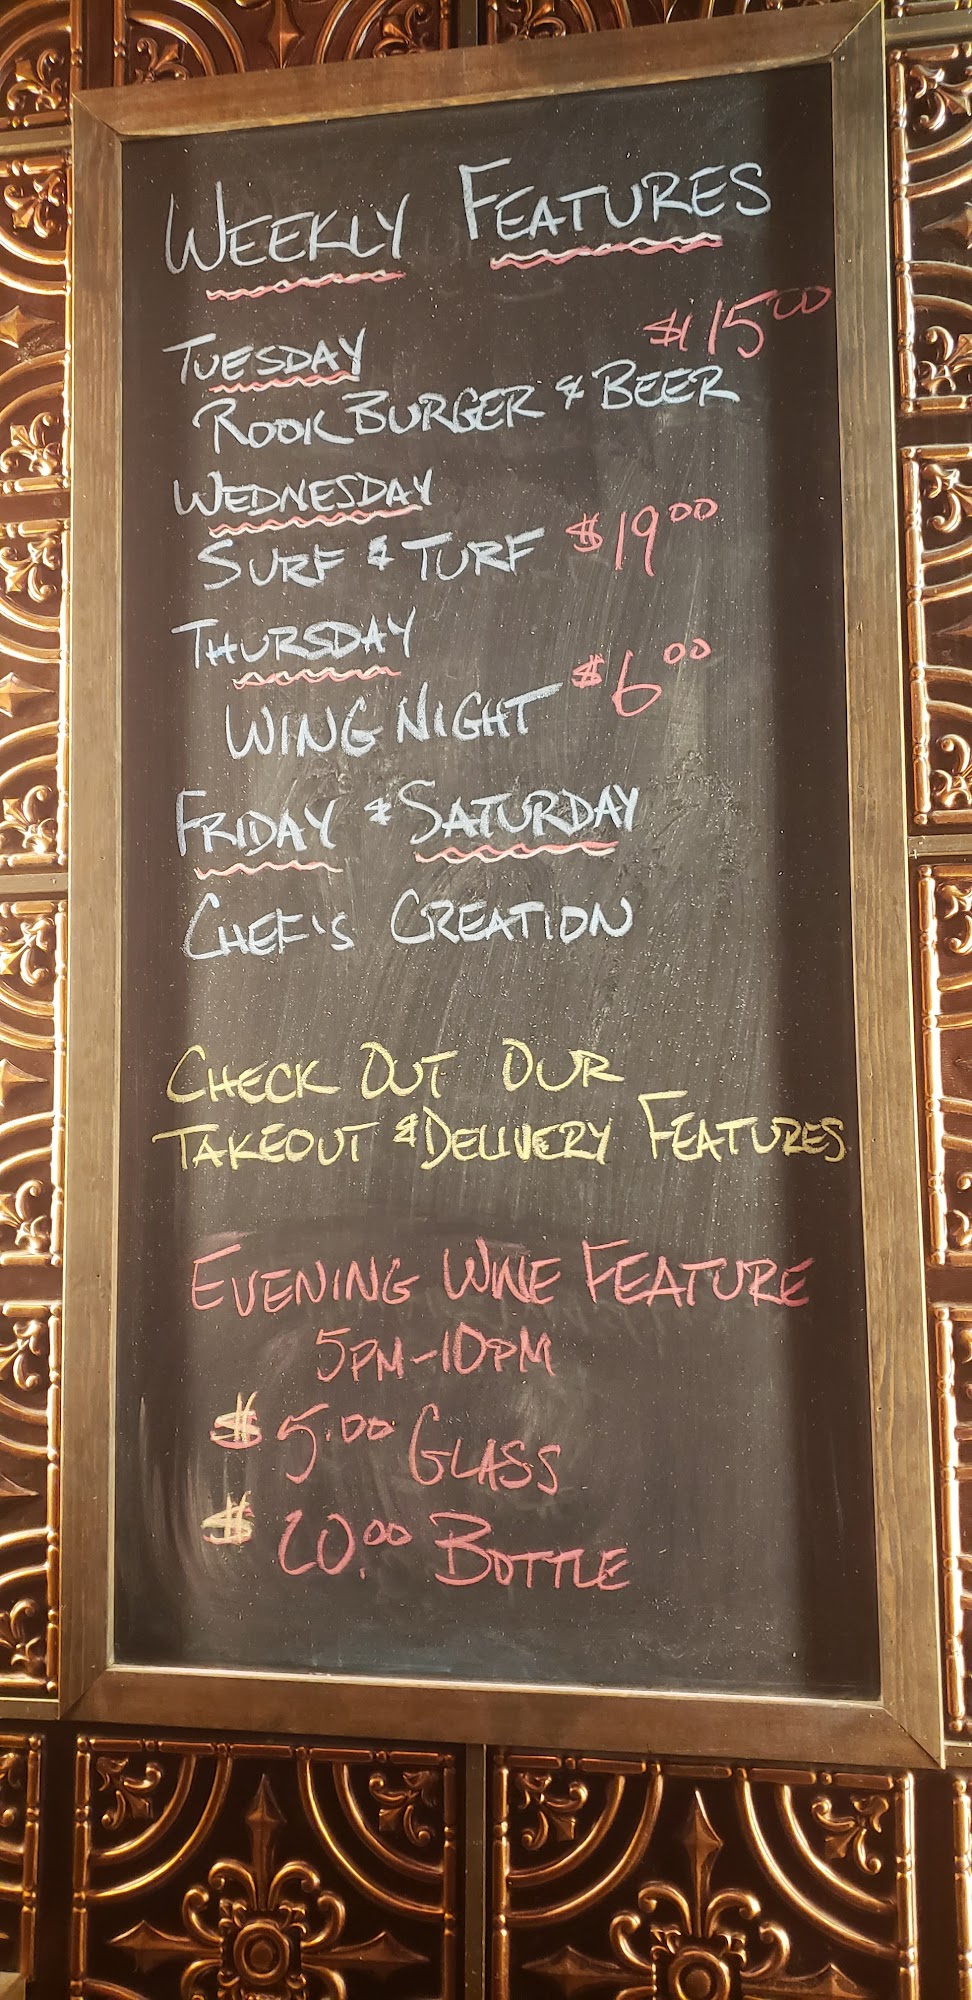 WEEKLY FEATURES
TUESDAY $15.00
ROOK BURGER & BEER
WEDNESDAY
SURF & TURF $19.00
THURSDAY
WING NIGHT $6.00
FRIDAY & SATURDAY
CHEF'S CREATION
CHECK OUT OUR
TAKEOUT & DELIVERY FEATURES
EVENING WINE FEATURE
5PM-10PM
$5.00 GLASS
$20.00 BOTTLE